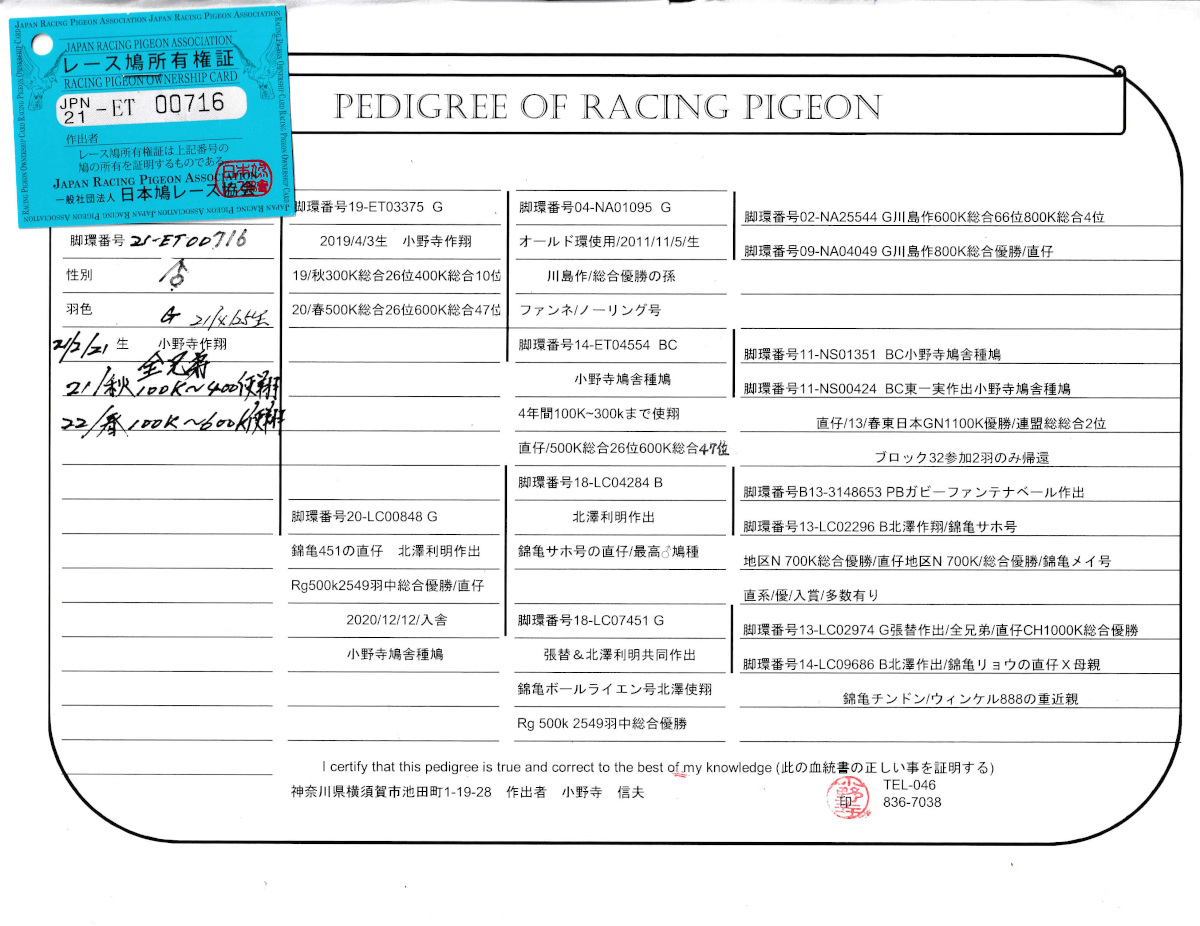 JAPAN RACING PIGEON ASSOCIATION JAPAN RACING PIGEON ASSOCIATION
JAPAN RACING PIGEON ASSOCIATION
レース鳩所有権証
RACING PIGEON OWNERSHIP CARD
JPN 21 -ET 00716
作出者
レース鳩所有権証は上記番号の
鳩の所有を証明するものである。
JAPAN RACING PIGEON ASSOCIATION
一般社団法人 日本鳩レース協会
PEDIGREE OF RACING PIGEON
脚環番号 21-ET00716
性別 ♂
羽色 G 21/4/25生
21/2/21 生 小野寺作翔
全兄弟
21/秋 100K~400使翔
22/春 100K~600K使翔
脚環番号19-ET03375 G
2019/4/3生 小野寺作翔
19/秋300K総合26位400K総合10位
20/春500K総合26位600K総合47位
脚環番号20-LC00848 G
錦亀451の直仔 北澤利明作出
Rg500k2549羽中総合優勝/直仔
2020/12/12/入舎
小野寺鳩舎種鳩
脚環番号04-NA01095 G
オールド環使用/2011/11/5/生
川島作/総合優勝の孫
ファンネ/ノーリング号
脚環番号14-ET04554 BC
小野寺鳩舎種鳩
4年間100K~300kまで使翔
直仔/500K総合26位600K総合47位
脚環番号18-LC04284 B
北澤利明作出
錦亀サホ号の直仔/最高♂鳩種
脚環番号18-LC07451 G
張替＆北澤利明共同作出
錦亀ボールライエン号北澤使翔
Rg 500k 2549羽中総合優勝
脚環番号02-NA25544 G川島作600K総合66位800K総合4位
脚環番号09-NA04049 G川島作800K総合優勝/直仔
脚環番号11-NS01351 BC小野寺鳩舎種鳩
脚環番号11-NS00424 BC東一実作出小野寺鳩舎種鳩
直仔/13/春東日本GN1100K優勝/連盟総総合2位
ブロック32参加2羽のみ帰還
脚環番号B13-3148653 PBガビーファンテナベール作出
脚環番号13-LC02296 B北澤作翔/錦亀サホ号
地区N 700K総合優勝/直仔地区N 700K/総合優勝/錦亀メイ号
直系/優/入賞/多数有り
脚環番号13-LC02974 G張替作出/全兄弟/直仔CH1000K総合優勝
脚環番号14-LC09686 B北澤作出/錦亀リョウの直仔X母親
錦亀チンドン/ウィンケル888の重近親
I certify that this pedigree is true and correct to the best of my knowledge (此の血統書の正しい事を証明する)
神奈川県横須賀市池田町1-19-28 作出者 小野寺 信夫
印
TEL-046
836-7038